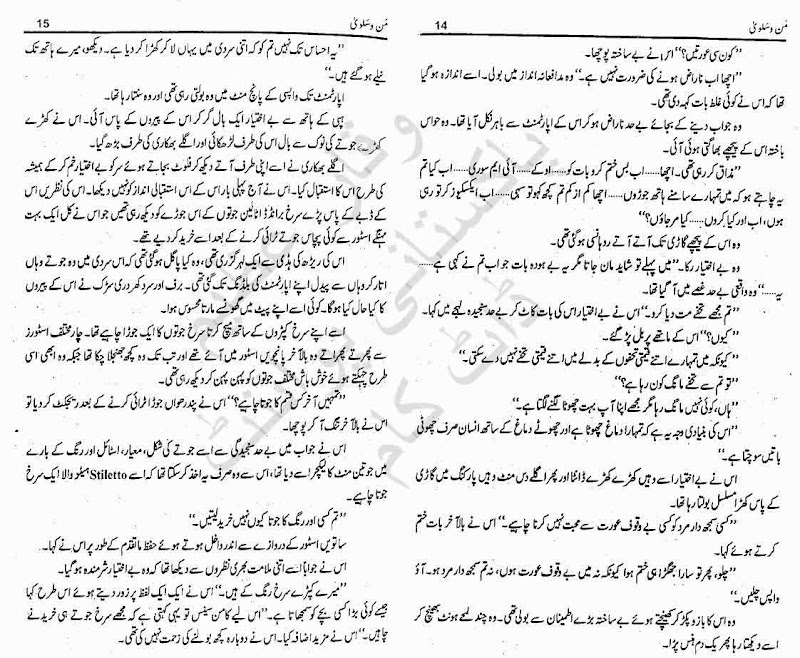 14 من وسلویٰ
”کون سی عورتیں؟“ اس نے بے ساختہ پوچھا۔
”اچھا اب ناراض ہونے کی ضرورت نہیں ہے۔“ وہ مدافعانہ انداز میں بولی۔ اسے اندازہ ہو گیا
تھا کہ اس نے کوئی غلط بات کہہ دی تھی۔
وہ جواب دینے کے بجائے بے حد ناراض ہو کر اس کے اپارٹمنٹ سے باہر نکل آیا تھا۔ وہ حواس
باختہ اس کے پیچھے بھاگتی ہوئی آئی۔
”مذاق کر رہی تھی۔ اچھا...... اب بس ختم کرو بات کو...... اوکے...... آئی ایم سوری...... اب کیا تم
یہ چاہتے ہو کہ میں تمہارے سامنے ہاتھ جوڑوں...... اچھا کم از کم تم کچھ کہو تو سہی...... اب ایکسکیوز کر تو رہی
ہوں، اب اور کیا کروں...... کیا مر جاؤں؟“
وہ اس کے پیچھے گاڑی تک آتے آتے روہانسی ہو گئی تھی۔
وہ بے اختیار رکا۔ ”میں پہلے تو شاید مان جاتا مگر یہ بے ہودہ بات جو اب تم نے کہی ہے......
یہ......“ وہ واقعی بے حد غصے میں آ گیا تھا۔
”تم مجھے تحفے مت دیا کرو۔“ اس نے بے اختیار اس کی بات کاٹ کر بے حد سنجیدہ لہجے میں کہا۔
”کیوں؟“ اس کے ماتھے پر بل پڑ گئے۔
”کیونکہ میں تمہارے اتنے قیمتی تحفوں کے بدلے میں اتنے قیمتی تحفے نہیں دے سکتی۔“
”تو تم سے تحفے مانگ کون رہا ہے؟“
”ہاں، کوئی نہیں مانگ رہا مگر مجھے اپنا آپ بہت چھوٹا لگنے لگتا ہے۔“
”اس کی بنیادی وجہ یہ ہے کہ تمہارا دماغ چھوٹا ہے اور چھوٹے دماغ کے ساتھ انسان صرف چھوٹی
باتیں سوچتا ہے۔“
اس نے بے اختیار اسے وہیں کھڑے کھڑے ڈانٹا اور پھر اگلے دس منٹ وہیں پارکنگ میں گاڑی
کے پاس کھڑا مسلسل بولتا رہا تھا۔
”کسی سمجھ دار مرد کو کسی بے وقوف عورت سے محبت نہیں کرنا چاہیے۔“ اس نے بالآخر بات ختم
کرتے ہوئے کہا۔
”چلو، پھر تو سارا جھگڑا ہی ختم ہوا کیونکہ نہ میں بے وقوف عورت ہوں، نہ تم سمجھ دار مرد ہو۔ آؤ
واپس چلیں۔“
وہ اس کا بازو پکڑ کر کھینچتے ہوئے بے ساختہ بڑے اطمینان سے بولی تھی۔ وہ چند لمحے ہونٹ بھینچ کر
اسے دیکھتا رہا پھر یک دم ہنس پڑا۔
15 من وسلویٰ
”یہ احساس تک نہیں تم کو کہ اتنی سردی میں یہاں لا کر کھڑا کر دیا ہے۔ دیکھو، میرے ہاتھ تک
نیلے ہو گئے ہیں۔“
اپارٹمنٹ تک واپسی کے پانچ منٹ میں وہ بولتی رہی تھی اور وہ سنتا رہا تھا۔
ہپی کے ہاتھ سے بے اختیار ایک بال گر کر اس کے پیروں کے پاس آئی۔ اس نے کھڑے
کھڑے جوتے کی نوک سے بال اس کی طرف لڑھکائی اور اگلے بھکاری کی طرف بڑھ گیا۔
اگلے بھکاری نے اسے اپنی طرف آتے دیکھ کر فلوٹ بجاتے ہوئے سر کو بے اختیار خم کر کے ہمیشہ
کی طرح اس کا استقبال کیا۔ اس نے آج پہلی بار اس کے اس استقبالی انداز کو نہیں دیکھا۔ اس کی نظریں اس
کے ڈبے کے پاس پڑے سرخ برانڈڈ اٹالین جوتوں کے اس جوڑے کو دیکھ رہی تھیں جو اس نے کل ایک بہت
مہنگے اسٹور سے کوئی پچاس جوتے ٹرائی کرنے کے بعد اسے خرید کر دیے تھے۔
اس کی ریڑھ کی ہڈی سے ایک لہر گزری تھی، وہ کیا پاگل ہو گئی تھی کہ اس سردی میں وہ جوتے وہاں
اتار کر وہاں سے پیدل اپنے اپارٹمنٹ کی بلڈنگ تک گئی تھی۔ برف اور کھردری سڑک نے اس کے پیروں
کا کیا حال کیا ہو گا۔ کوئی اسے اپنے پیٹ میں گھونسے مارتا محسوس ہوا۔
اسے اپنے سرخ کپڑوں کے ساتھ میچ کرتا سرخ جوتوں کا ایک جوڑا چاہیے تھا۔ چار مختلف اسٹورز
سے پھرتے پھراتے وہ بالآخر پانچویں اسٹور میں آئے تھے اور تب تک وہ کچھ جھنجلا چکا تھا جبکہ وہ ابھی اسی
طرح چہکتے ہوئے خوش باش مختلف جوتوں کو پہن پہن کر دیکھ رہی تھی۔
”تمہیں آخر کس قسم کا جوتا چاہیے؟“ اس نے پندرھواں جوڑا ٹرائی کرنے کے بعد ریجیکٹ کر دیا تو
اس نے بالآخر تنگ آ کر پوچھا۔
اس نے جواب میں بے حد سنجیدگی سے اسے جوتے کی شکل، معیار، اسٹائل اور رنگ کے بارے
میں جو تین منٹ کا لیکچر اسے دیا تھا، اس سے وہ صرف یہ اخذ کر سکتا تھا کہ اسے Stiletto ہیلو والا ایک سرخ
جوتا چاہیے۔
”تم کسی اور رنگ کا جوتا کیوں نہیں خرید لیتیں۔“
ساتویں اسٹور کے دروازے سے اندر داخل ہوتے ہوئے حفظ ماتقدم کے طور پر اس نے کہا۔
اس نے جواباً اسے اتنی ملامت بھری نظروں سے دیکھا تھا کہ وہ بے اختیار شرمندہ ہو گیا۔
”میرے کپڑے سرخ رنگ کے ہیں۔“ اس نے ایک ایک لفظ پر زور دیتے ہوئے اس طرح کہا
جیسے کوئی بڑا کسی بچے کو سمجھاتا ہے۔ ”اس لیے کامن سینس تو یہی کہتی ہے کہ مجھے سرخ جوتے ہی خریدنے
چاہیں۔“ اس نے مزید اضافہ کیا۔ اس نے دوبارہ کچھ بولنے کی زحمت نہیں کی تھی۔